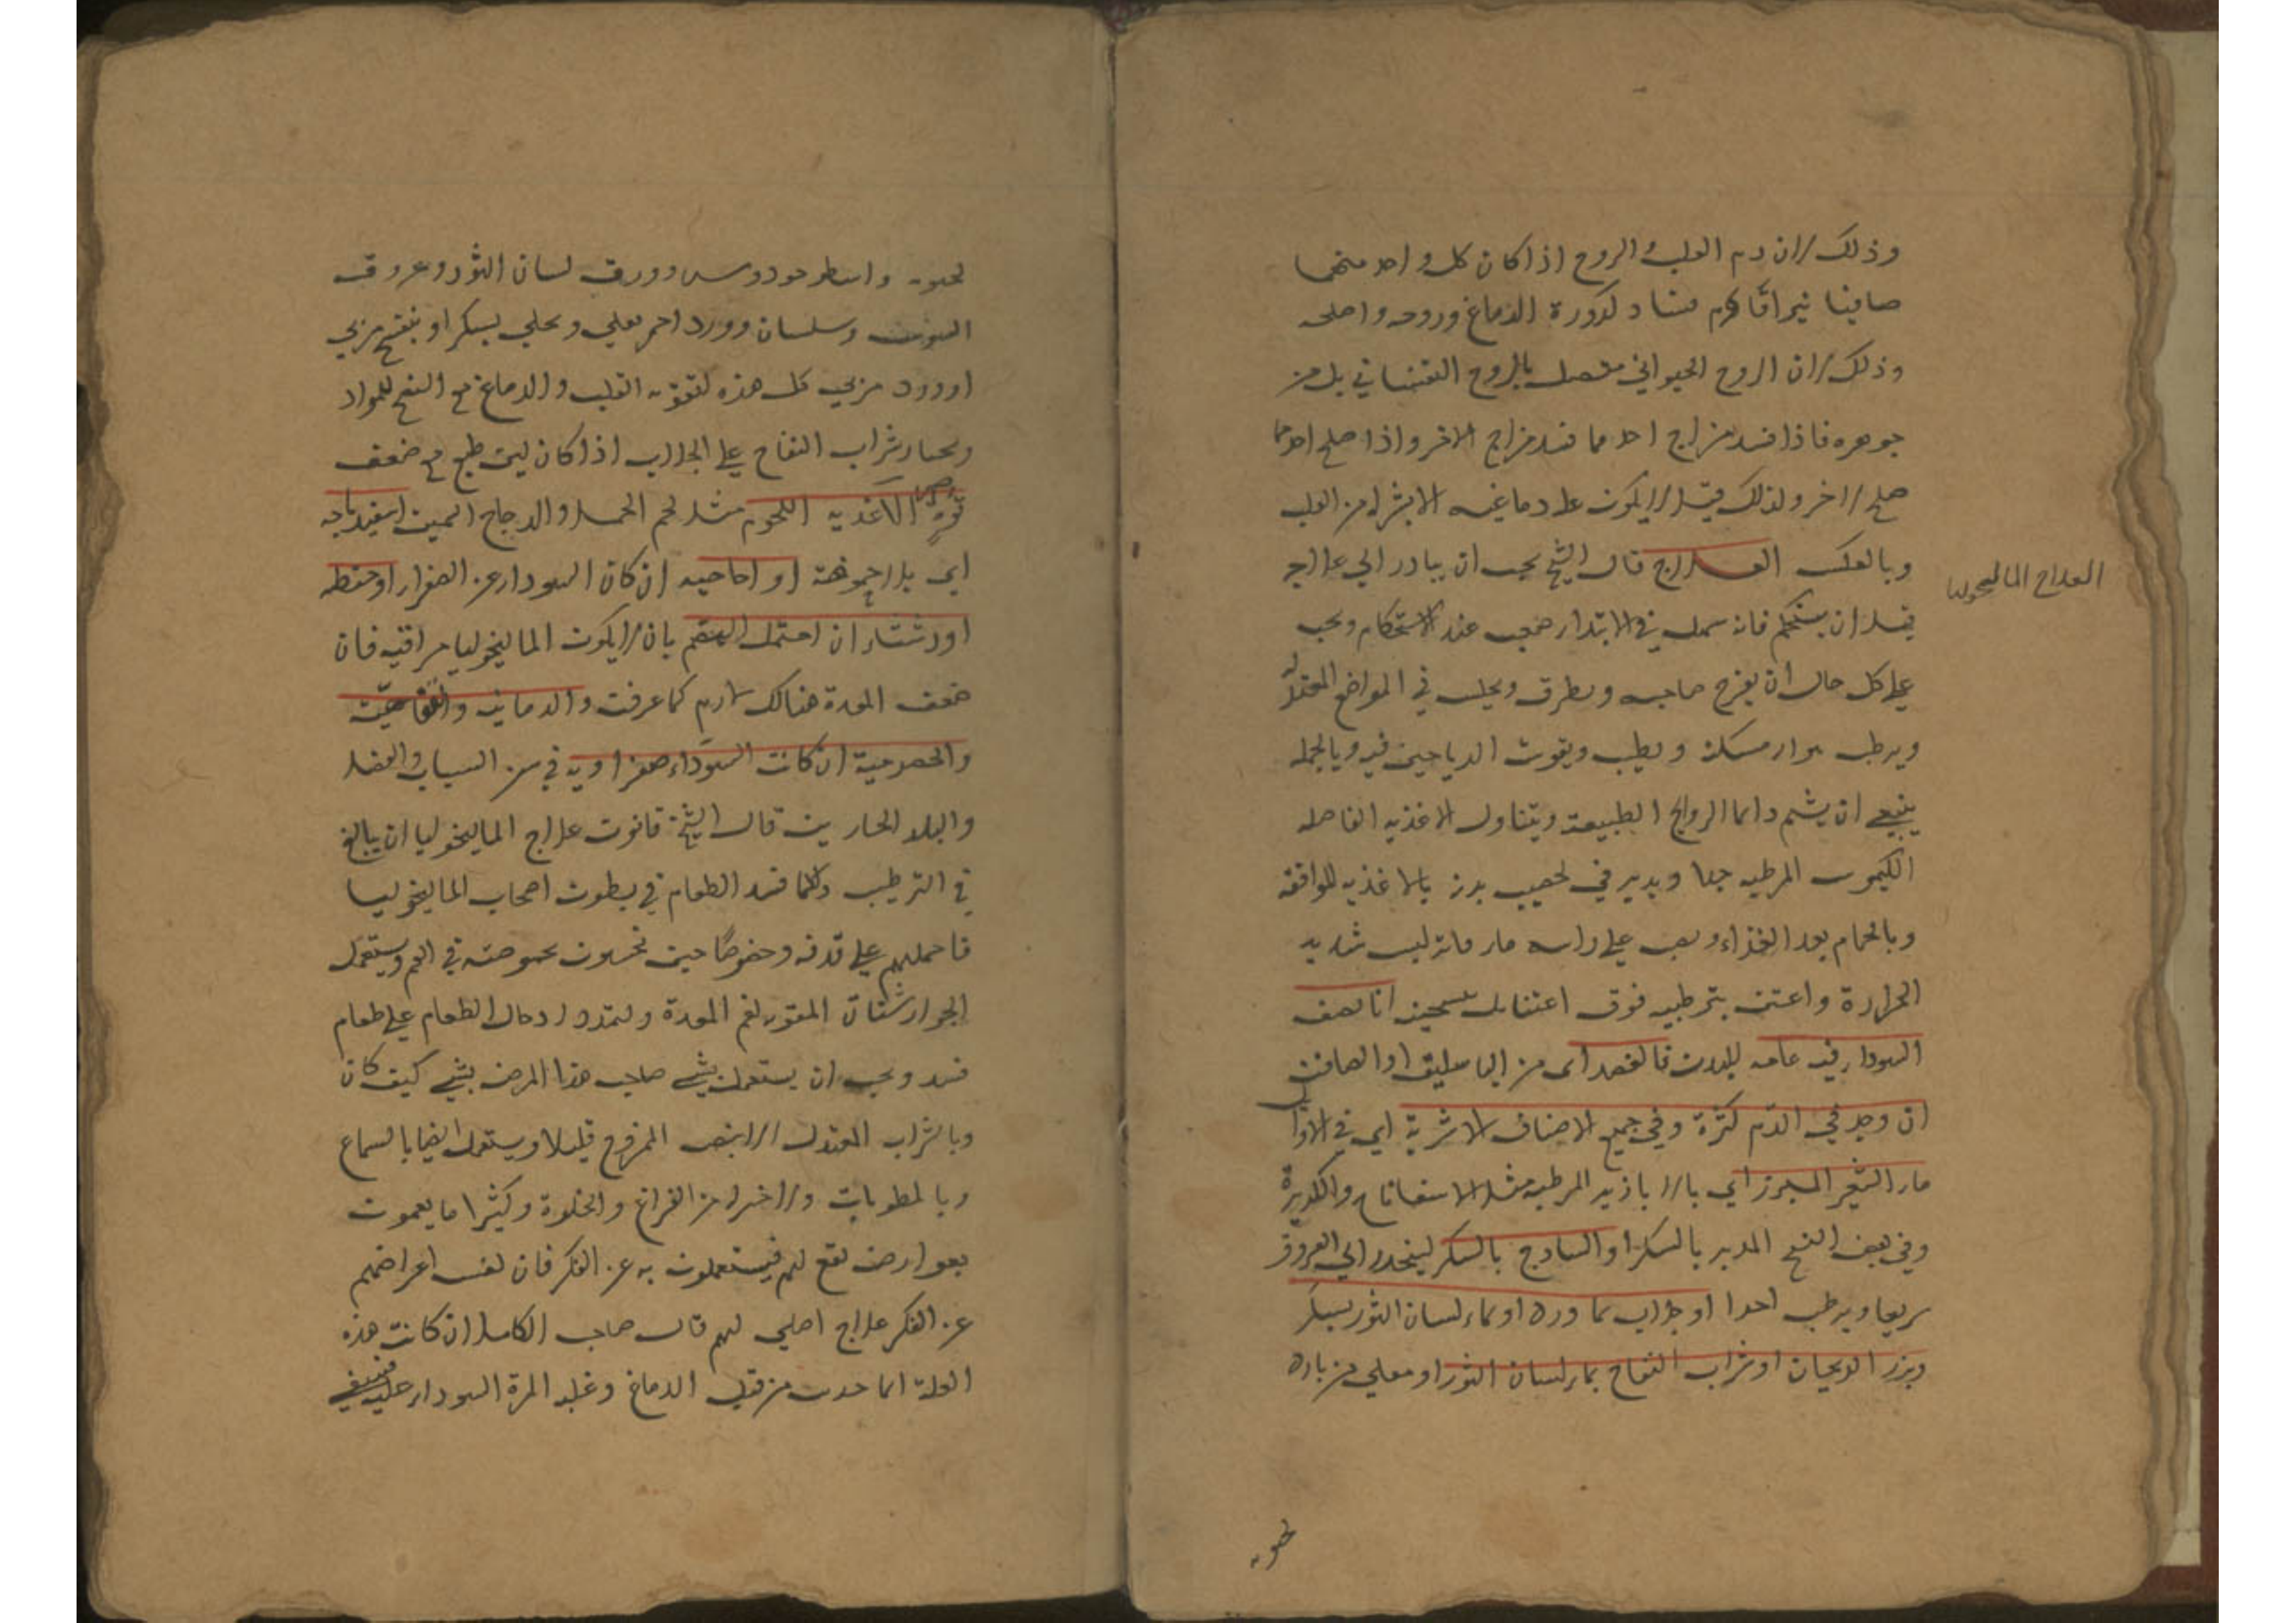 وذلك لان دم القلب والروح اذا كان كل واحد منهما
صافيا نيرا قاوم فساد كدورة الدماغ وروحه واصلحه
وذلك لان الروح الحيواني متصل بالروح النفساني بل من
جوهره فاذا فسد مزاج احدهما فسد مزاج الاخر واذا صلح احدهما
صلح الاخر ولذلك قيل لا يكون علة دماغيه الا بشركة من القلب
وبالعكس العلاج قال الشيخ يجب ان يبادر الي علاج
العلاج الماليخوليا
قبل ان يستحكم فانه سهل في الابتداء صعب عند الاستحكام ويجب
علي كل حال ان يفرح صاحبه ويطرب ويجلس في المواضع المعتدلة
ويرطب هواء مسكنه ويطيب ويفرش الرياحين فيه وبالجمله
ينبغي ان يشم دائما الروايح الطيبة ويتناول الاغذيه الفاضله
الكيموس المرطبه جدا ويدبر في تخصيب بدنه بالاغذيه الموافقه
وبالحمام بعد الغذاء ويصب علي راسه ماء فاتر ليس شديد
الحرارة واعتن بترطيبه فوق اعتنائك بتسخينه
السوداء فيه عامه للبدن فالفصد اي من الباسليق او الصافن
ان وجد في الدم كثرة وفي جميع الاصناف الاشربة اي في الاول
ماء الشعير المبزر اي بالابازير المرطبه مثل الاسفاناخ والكزبرة
وفي بعض النسخ المدبر بالسكر او الساذج بالسكر لينحدر الي العروق
سريعا ويرطب احدا او جلاب بماء ورد او بماء لسان الثور بسكر
وبزر الريحان او شراب التفاح بماء لسان الثور او مغلي من باد
لحبويه
واسطوخودوس وورق لسان الثور وعروق
السوس وسلسان وورد احمر يغلي ويحلي بسكر او بنفسج مربي
او ورد مربي كل هذه لتقويه القلب والدماغ مع النضج للمواد
ويختار شراب التفاح علي الجلاب اذا كان لين طبع مع ضعف
قوة الاغذيه اللحوم مثل لحم الحمل والدجاج السمين اسفيدباجه
اي بلا حموضة او اجاصيه ان كان السوداء عن الصفراء او حنطه
او رشتا ان احتمل الهضم بان لا يكون الماليخوليا مراقيه فان
ضعف المعدة هنالك لازم كما عرفت والرمانيه والتفاحية
والحصرمية ان كانت السوداء صفراويه في سن الشباب والفصل
والبلد الحارين قال الشيخ قانون علاج الماليخوليا ان يبالغ
في الترطيب وكلما فسد الطعام في بطون اصحاب الماليخوليا
فاحملهم علي قذفه وخصوصا حين يحسون بحموضة في الفم ويستعمل
الجوارشنات المقويه لفم المعدة وليحذر ادخال الطعام علي طعام
فسد ويجب ان يستعمل بشي صاحب هذا المرض بشي كيف كان
وبالشراب المعتدل الابيض الممزوج قليلا ويستعمل ايضا بالسماع
وبالمطربات ولا اضر له من الفراغ والخلوة وكثيرا ما يغمون
بعوارض تقع لهم فيستغلون به عن الفكر فان نفس اعراضهم
عن الفكر علاج اصلي لهم قال صاحب الكامل ان كانت هذه
العلة انما حدث من قبل الدماغ وغلبة المرة السوداء عليه فينبغي